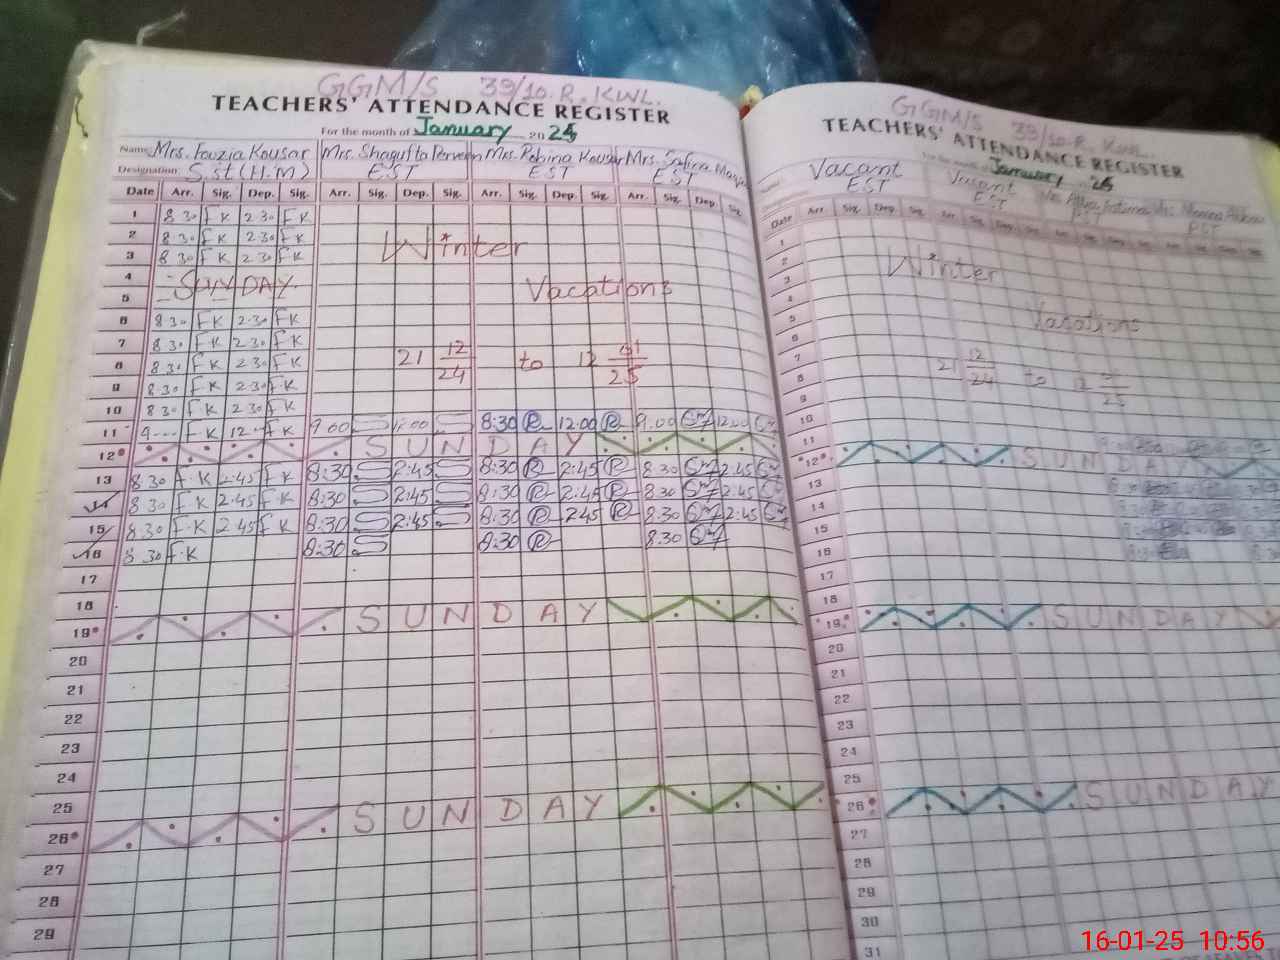 GGM/S 39/10.R. KWL.
TEACHERS' ATTENDANCE REGISTER
For the month of January 2025
Name Mrs. Fouzia Kousar Mrs. Shagufta Perveen Mrs. Robina Kousar Mrs.
Designation S.st (H.M) EST EST EST
Date Arr. Sig. Dep. Sig. Arr. Sig. Dep. Sig. Arr. Sig. Dep. Sig. Arr. Sig. Dep. Sig.
1 8 30 F K 2 30 F K
2 8 30 F K 2 30 F K Winter
3 8 30 F K 2 30 F K
4 SUNDAY Vacations
5
6 8 30 F K 2 30 F K
7 8 30 F K 2 30 F K
8 8 30 F K 2 30 F K 21 12/24 to 12 01/25
9 8 30 F K 2 30 F K
10 8 30 F K 2 30 F K
11 9 F K 12 F K 9 00 12:00 8:30 R 12:00 R 9:00 12:00
12 SUNDAY
13 8 30 F K 2 45 F K 8:30 2:45 8:30 R 2:45 R 8 30 2 45
14 8 30 F K 2 45 F K 8:30 2:45 8:30 R 2:45 R 8 30 2 45
15 8 30 F K 2 45 F K 8:30 2:45 8:30 R 2 45 R 8 30 2 45
16 8 30 F K 8:30 8:30 R 8 30
17
18 SUNDAY
19
20
21
22
23
24
25 SUNDAY
26
27
28
29
GGM/S 39/10.R. KWL.
TEACHERS' ATTENDANCE REGISTER
For the month of January 25
Vacant Vacant
EST EST PST
Date Arr. Sig. Dep Sig.
1
2 Winter
3
4
5 Vacations
6
7
8 21 12/24 to 12
9
10
11
12 SUNDAY
13
14
15
16
17
18
19 SUNDAY
20
21
22
23
24
25
26 SUNDAY
27
28
29
30
31
16-01-25 10:56